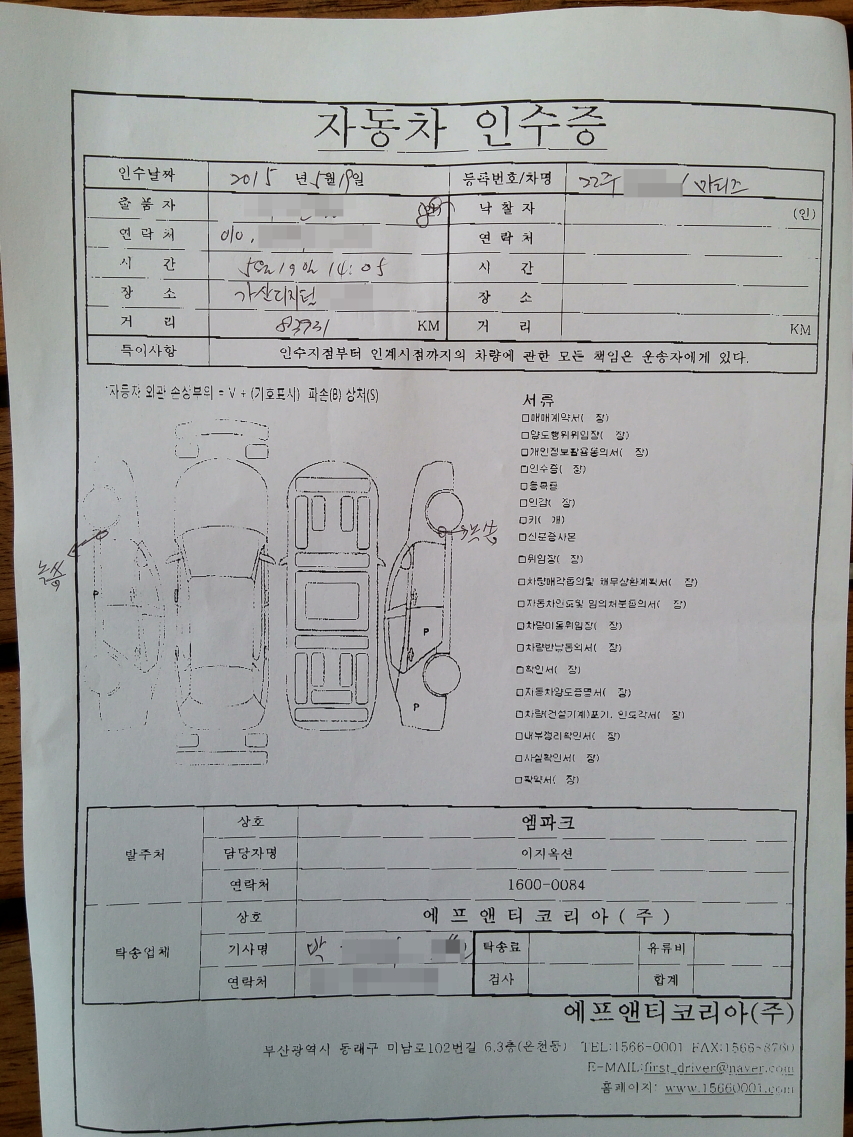 자동차 인수증
인수날짜 2015 년 5월 19일 등록번호/차명 22주 / 마티즈
출품자 낙찰자 (인)
연락처 010. 연락처
시 간 5월 19일 14:05 시 간
장 소 가산디지털 장 소
거 리 KM 거 리 KM
특이사항 인수지점부터 인계시점까지의 차량에 관한 모든 책임은 운송자에게 있다.
*자동차 외관 손상부위 = V + (기호표시) 파손(B) 상처(S)
서류
□매매계약서( 장)
□양도행위위임장( 장)
□개인정보활용동의서( 장)
□인수증( 장)
□등록증
□인감( 장)
□키( 개)
□신분증사본
□위임장( 장)
□차량매각동의및 채무상환계획서( 장)
□자동차인도및 임의처분동의서( 장)
□차량이동위임장( 장)
□차량반납동의서( 장)
□확인서( 장)
□자동차양도증명서( 장)
□차량(건설기계)포기, 인도각서( 장)
□내부정리확인서( 장)
□사실확인서( 장)
□확약서( 장)
녹씀
녹씀
P
P
P
발주처
상호 엠파크
담당자명 이지옥션
연락처 1600-0084
탁송업체
상호 에프앤티코리아(주)
기사명 박 탁송료 유류비
연락처 검사 합계
에프앤티코리아(주)
부산광역시 동래구 미남로102번길 6,3층(온천동) TEL:1566-0001 FAX:1566-8760
E-MAIL:first_driver@naver.com
홈페이지: www.15660001.com